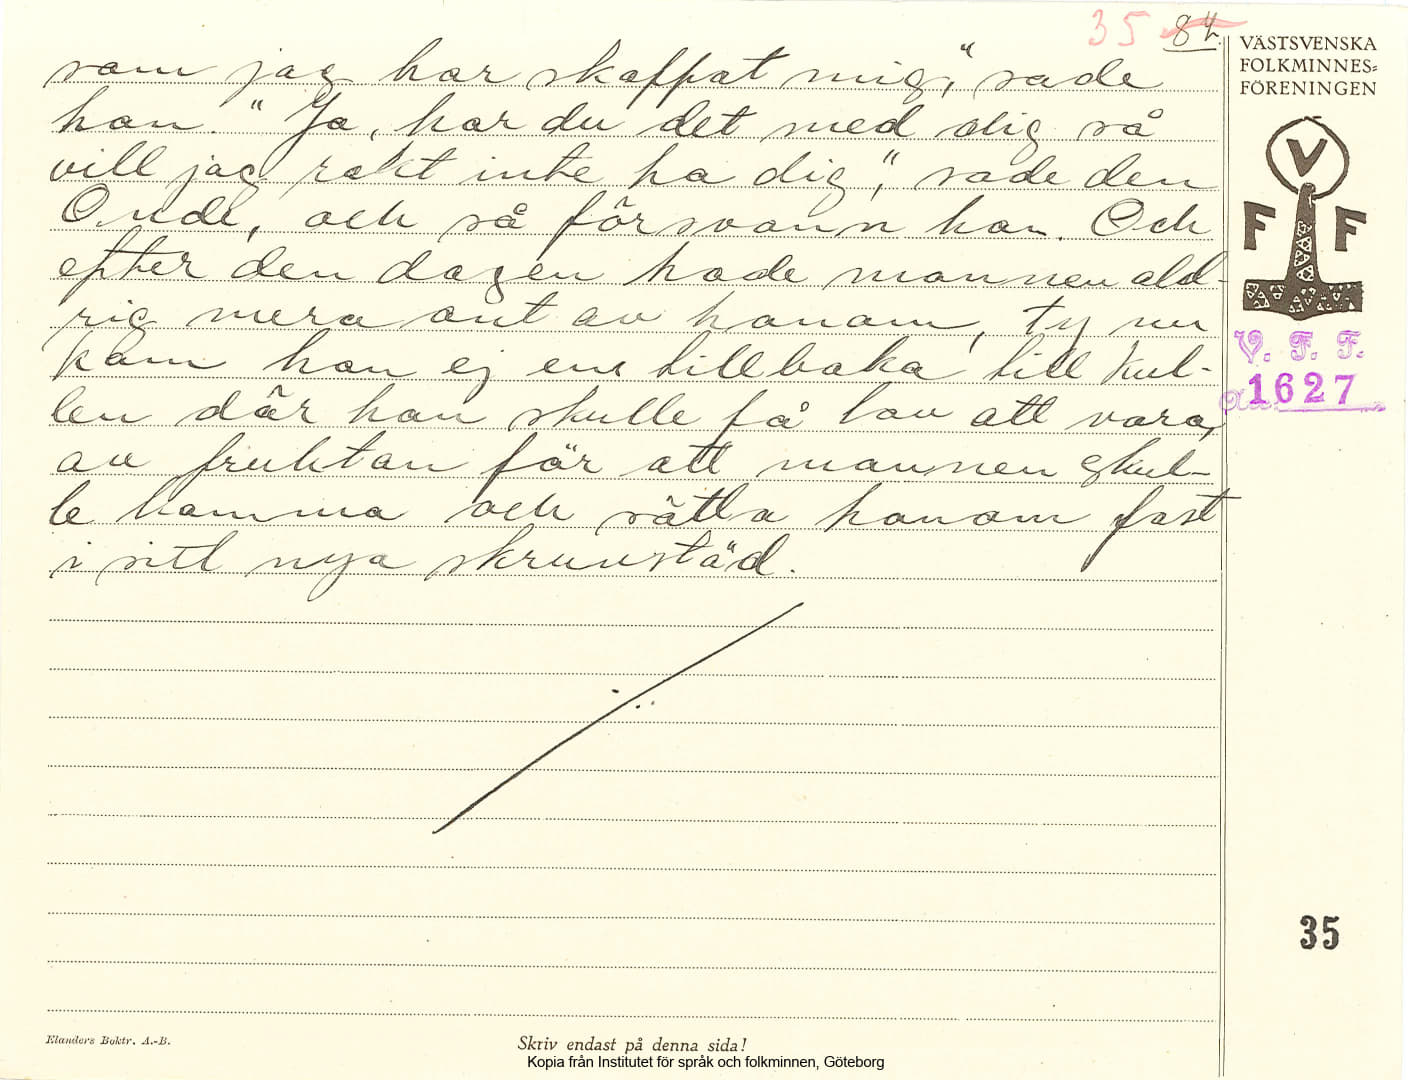 35 84.
som jag har skaffat mig," sade
han. "Ja, har du det med dig så
vill jag rakt inte ha dig", sade den
Onde, och så försvann han. Och
efter den dagen hade mannen ald-
rig mera ont av honom, ty nu
kom han ej ens tillbaka till kul-
len där han skulle få lov att vara,
av fruktan för att mannen skul-
le komma och sätta honom fast
i sitt nya skruvstäd.
VÄSTSVENSKA
FOLKMINNES=
FÖRENINGEN
V
F F
V. F. F.
1627
35
Elanders Boktr. A.-B.
Skriv endast på denna sida!
Kopia från Institutet för språk och folkminnen, Göteborg